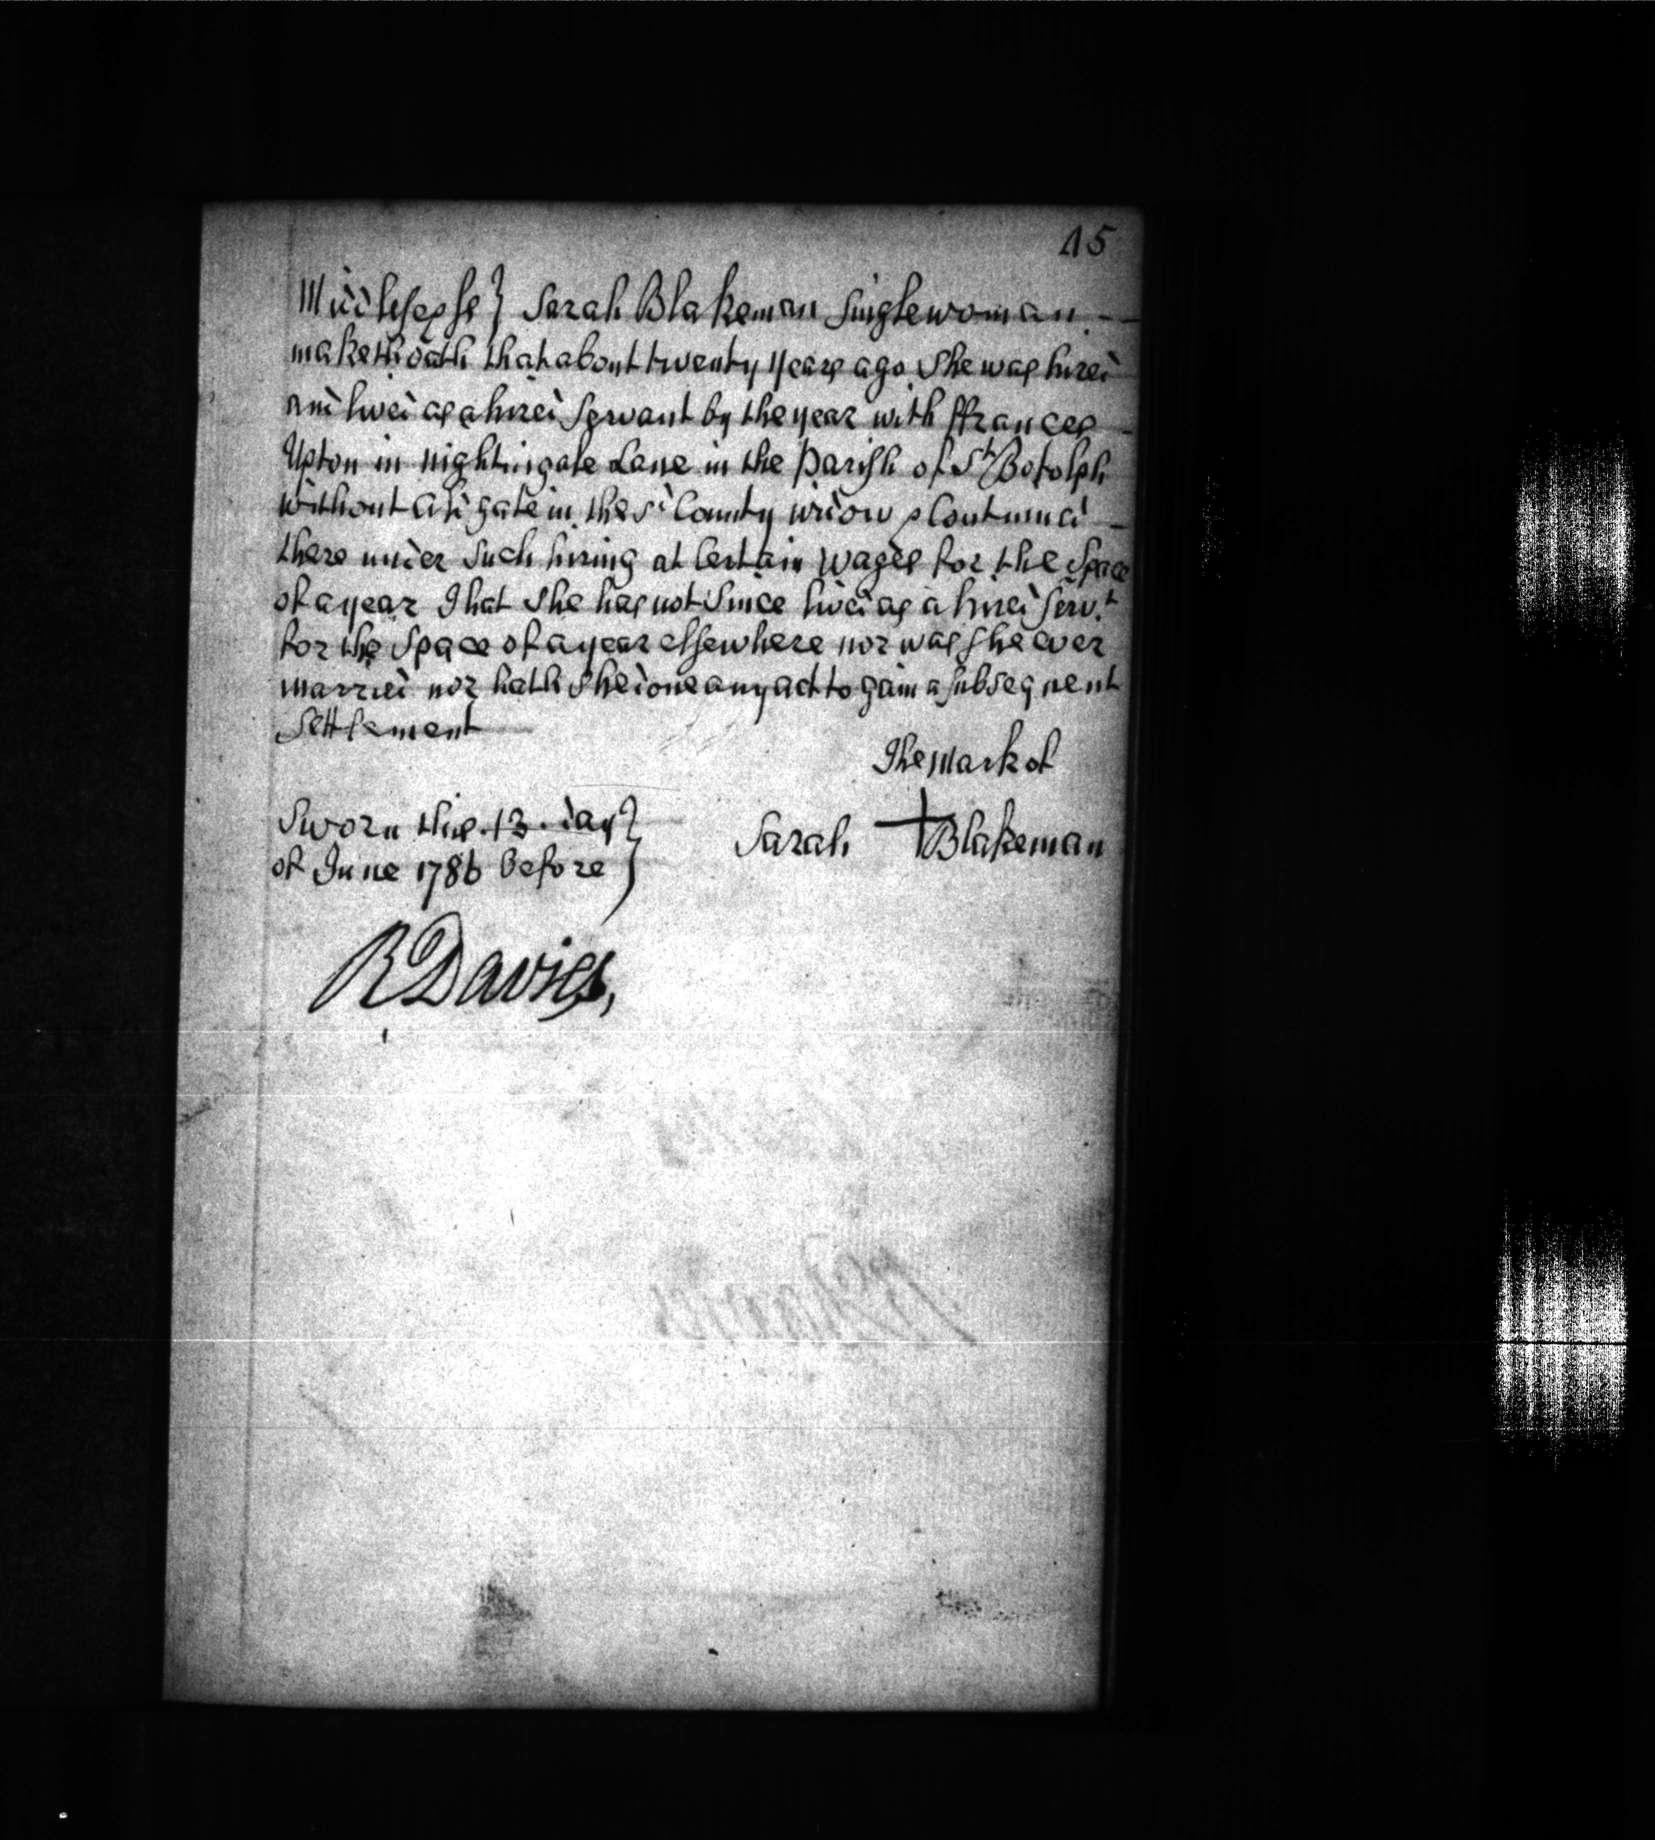 15
Middlesex Ss } Sarah Blakeman Singlewoman
maketh oath that about twenty years ago She was hired
and lived as a hired Servant by the year with ffrances
Upton in Nightingale Lane in the Parish of St. Botolph
without Aldgate in the sd. County widow & Continued
there under Such hiring at Certain Wages for the Space
of a year That She has not Since lived as a hired Serv.t
for the Space of a year elsewhere nor was She ever
Married nor hath She done any act to gain a Subsequent
Settlement
The Mark of
Sarah + Blakeman
Sworn this 13 day }
of June 1786 before }
R Davies